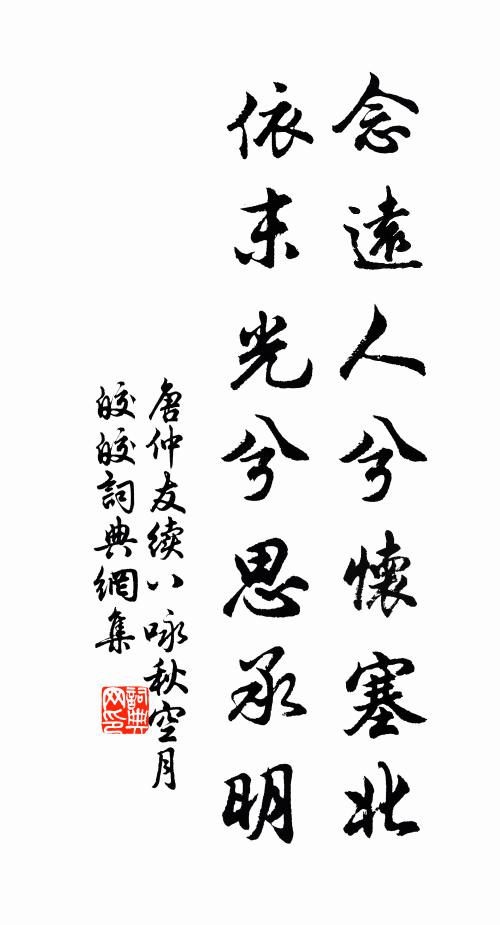 念遠人兮懷塞北
依末光兮思承明
唐仲友續八咏秋空月
皎皎詞典網集
詞典网印